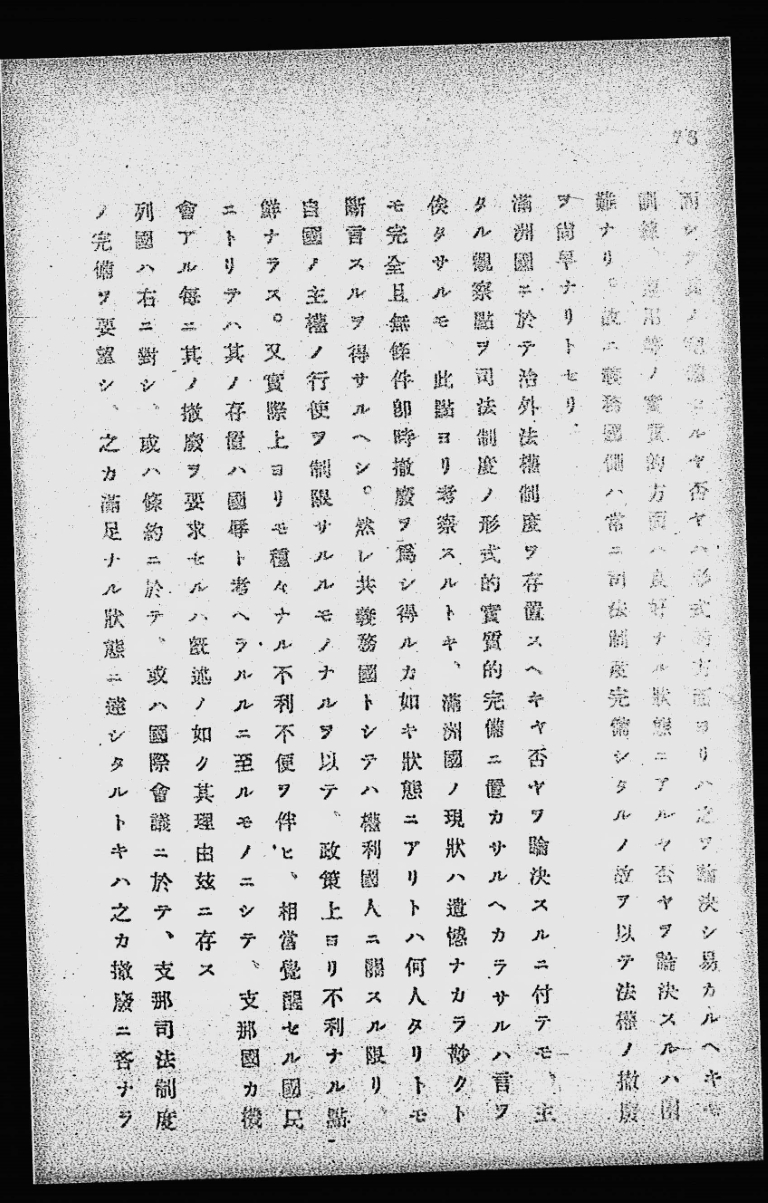 76
而シテ其ノ完備セルヤ否ヤハ形式的方面ヨリハ之ヲ論決シ易カルヘキモ
訓練、運用等ノ實質的方面ハ良好ナル狀態ニアルヤ否ヤヲ論決スルハ困
難ナリ。故ニ義務國側ハ常ニ司法制度完備シタルノ故ヲ以テ法權ノ撤廢
ヲ尙早ナリトセリ、
滿洲國ニ於テ治外法權制度ヲ存置スヘキヤ否ヤヲ論決スルニ付テモ、主
タル觀察點ヲ司法制度ノ形式的實質的完備ニ置カサルヘカラサルハ言ヲ
俟タサルモ、此點ヨリ考察スルトキ、滿洲國ノ現狀ハ遺憾ナカラ尠クト
モ完全且無條件卽時撤廢ヲ爲シ得ルカ如キ狀態ニアリトハ何人タリトモ
斷言スルヲ得サルヘシ。然レ共義務國トシテハ權利國人ニ關スル限リ、
自國ノ主權ノ行使ヲ制限サルルモノナルヲ以テ、政策上ヨリ不利ナル點
鮮ナラス。又實際上ヨリモ種々ナル不利不便ヲ伴ヒ、相當覺醒セル國民
ニトリテハ其ノ存置ハ國辱ト考ヘラルルニ至ルモノニシテ、支那國カ機
會アル每ニ其ノ撤廢ヲ要求セルハ旣述ノ如ク其理由玆ニ存ス
列國ハ右ニ對シ、或ハ條約ニ於テ、或ハ國際會議ニ於テ、支那司法制度
ノ完備ヲ要望シ、之カ滿足ナル狀態ニ達シタルトキハ之カ撤廢ニ吝ナラ